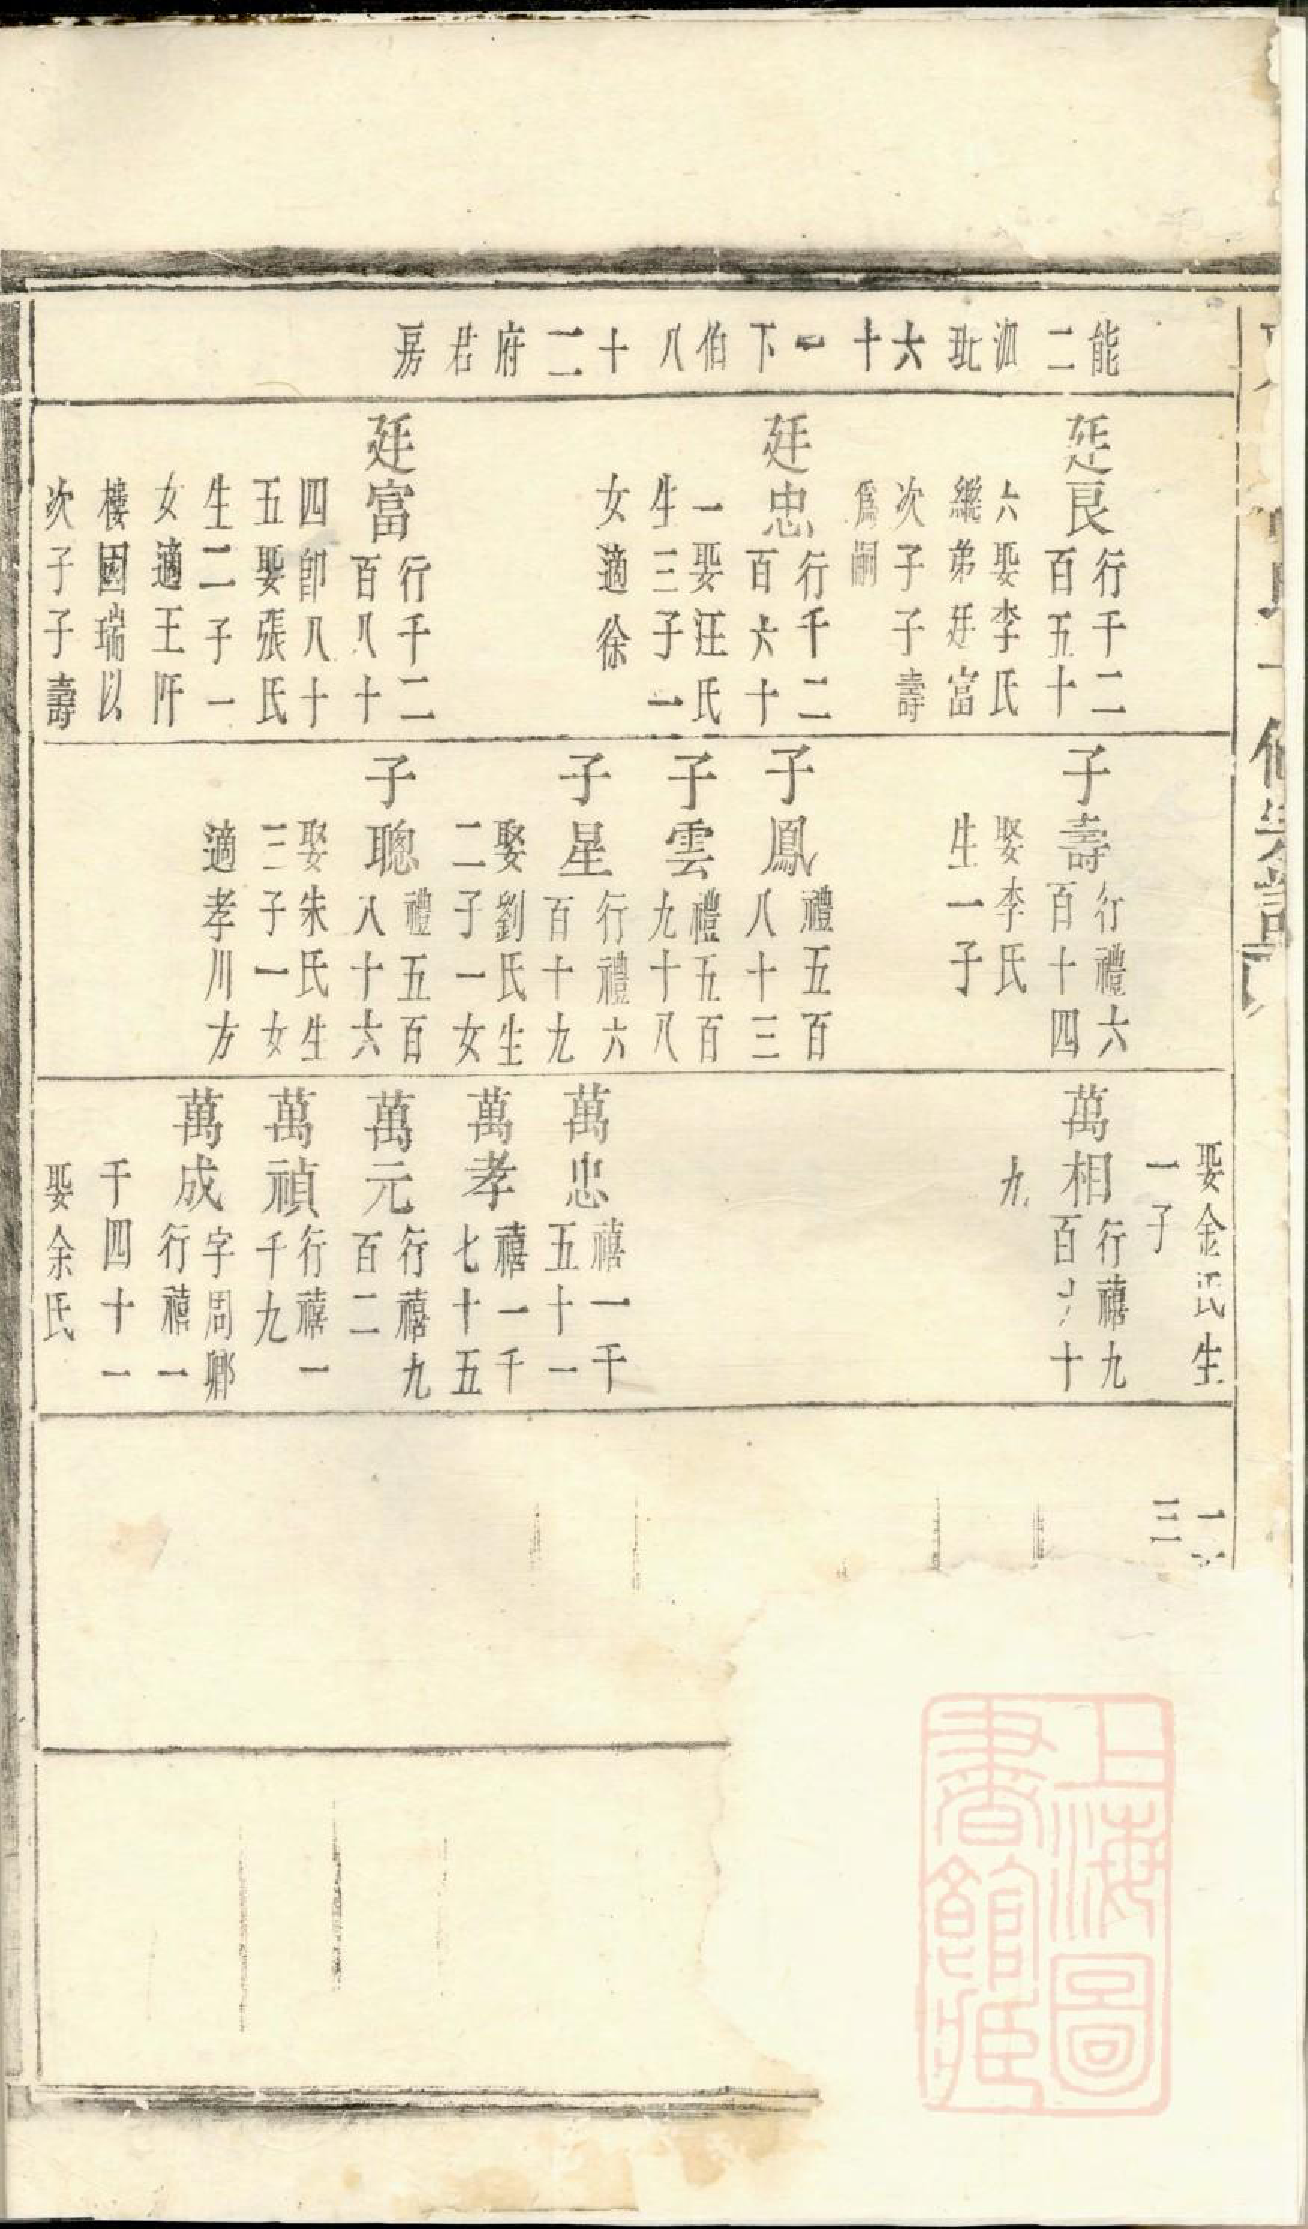 能二泗玭六十一下伯八十二府君房
廷良
行千二
百五十
六娶李氏
繼弟廷富
次子子壽
爲嗣
廷忠
行千二
百六十
一娶汪氏
生三子一
女適徐
廷富
行千二
百八十
四卽八十
五娶張氏
生二子一
女適王阡
樓國瑞以
次子子壽
子壽
行禮六
百十四
娶李氏
生一子
子鳳
禮五百
八十三
子雲
禮五百
九十八
子星
行禮六
百十九
娶劉氏生
二子一女
子聰
禮五百
八十六
娶朱氏生
三子一女
適孝川方
娶金氏生
一子
萬相
行禧九
百 十
九
萬忠
禧一千
五十一
萬孝
禧一千
七十五
萬元
行禧九
百二
萬禎
行禧一
千九
萬成
字周鄉
行禧一
千四十一
娶余氏
一
三
上海圖
書館藏